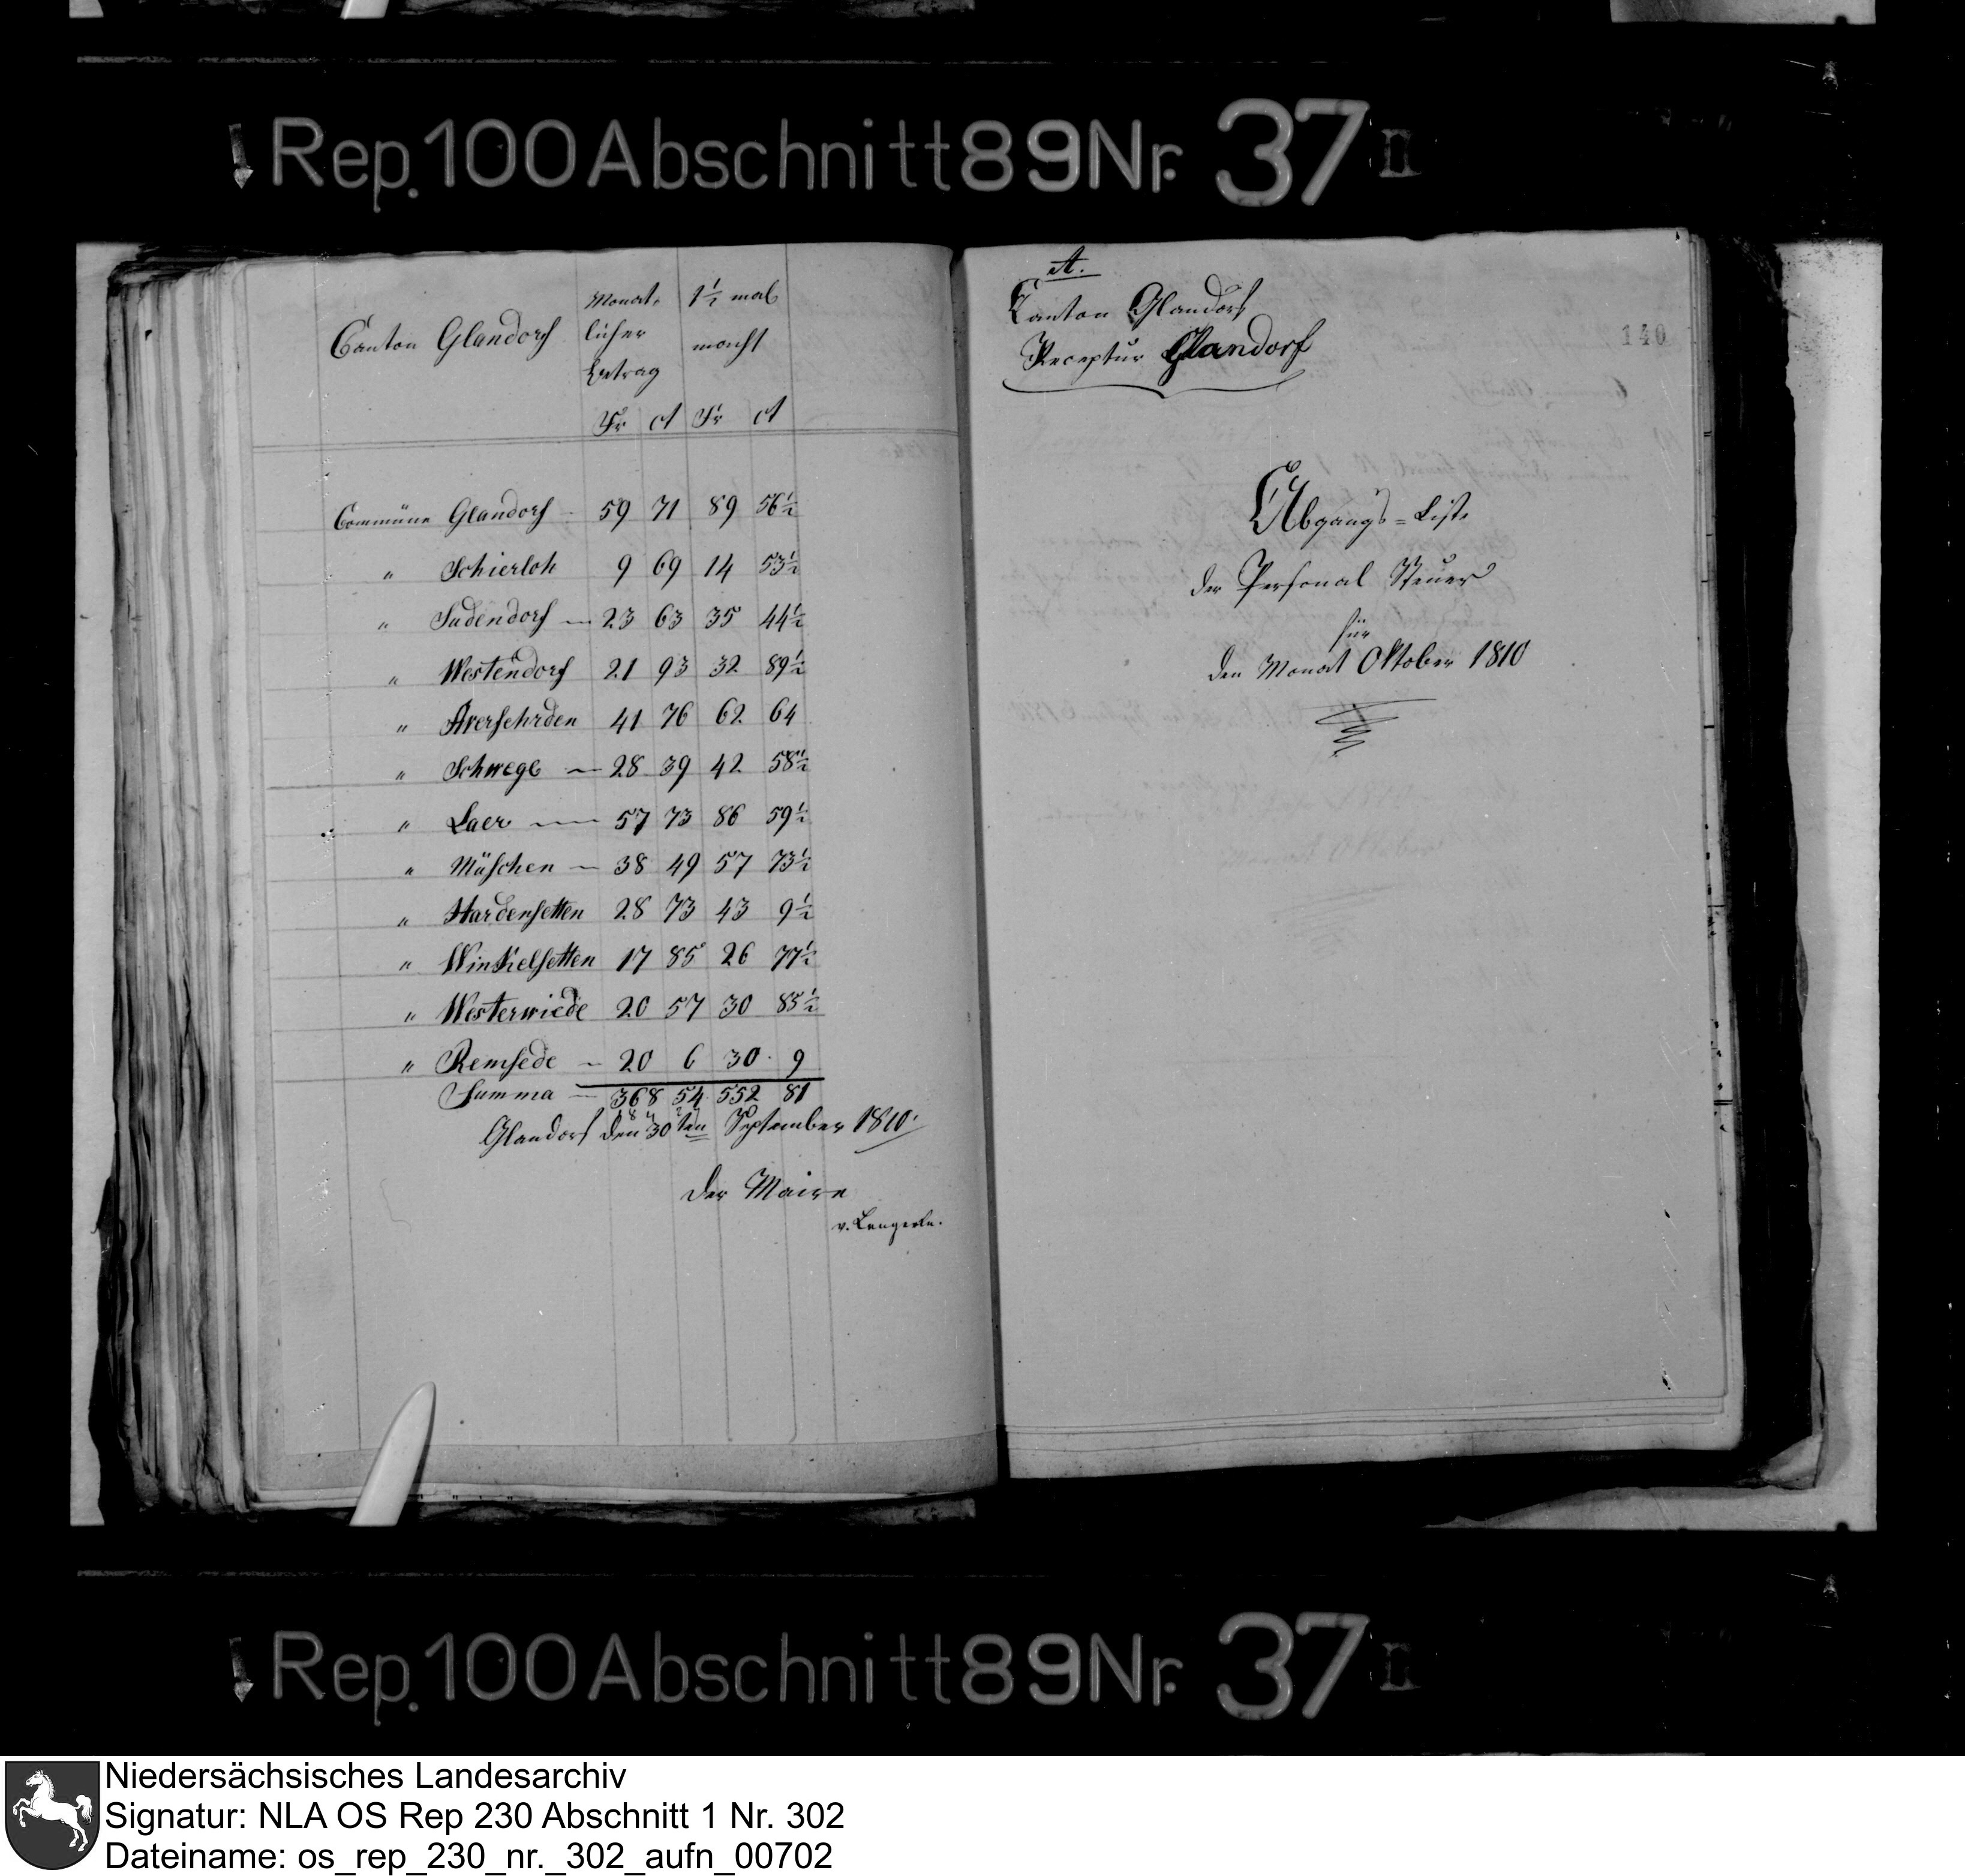 Rep. 100 Abschnitt 89 Nr. 37 II
Canton Glandorf
Monat-
licher
Betrag
1½ mal
macht
Fr ct Fr ct
Commüne Glandorf - 59 71 89 56½
" Schierloh 9 69 14 53½
" Sudendorf - 23 63 35 44½
" Westendorf 21 93 32 89½
" Averfehrden 41 76 62 64
" Schwege - 28 39 42 58½
" Laer - 57 73 86 59½
" Müschen - 38 49 57 73½
" Hardensetten 28 73 43 9½
" Winkelsetten 17 85 26 77½
" Westerwiede 20 57 30 85½
" Remsede - 20 6 30 9
Summa - 368 54 552 81
Glandorf den 30ten September 1810.
Der Maire
v. Lengerke.
A.
Canton Glandorf
Receptur Glandorf
140
Abgangs-Liste
der Personal Steuer
für
den Monat Oktober 1810
Rep. 100 Abschnitt 89 Nr. 37 II
Niedersächsisches Landesarchiv
Signatur: NLA OS Rep 230 Abschnitt 1 Nr. 302
Dateiname: os_rep_230_nr._302_aufn_00702